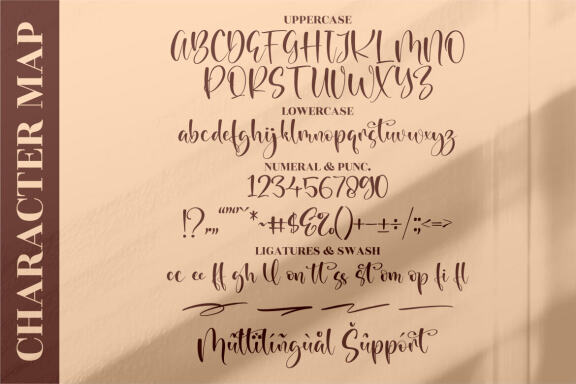 CHARACTER MAP
UPPERCASE
ABCDEFGHIJKLMNO
PQRSTUVWXYZ
LOWERCASE
abcdefghijklmnopqrstuvwxyz
NUMERAL & PUNC.
1234567890
!?.,„“”‘’"'*~#$€%()+−±÷/:;<=>
LIGATURES & SWASH
cc ee ff gh ll on tt ss st om op fi fl
Mûltïlíñgùàl Šûppórt